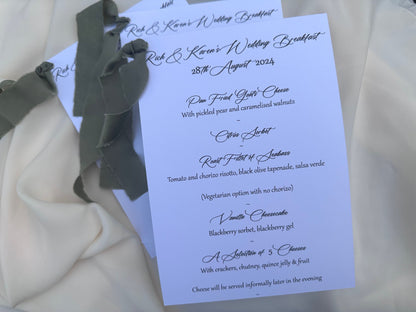 Rick & Karen's Wedding Breakfast
28th August 2024
Pan Fried Goats Cheese
With pickled pear and caramelized walnuts
~
Citrus Sorbet
~
Roast Fillet of Seabass
Tomato and chorizo risotto, black olive tapenade, salsa verde
(Vegetarian option with no chorizo)
~
Vanilla Cheesecake
Blackberry sorbet, blackberry gel
~
A Selection of 3 Cheeses
With crackers, chutney, quince jelly & fruit
Cheese will be served informally later in the evening
~
Rick & Karen's Wedding Breakfast